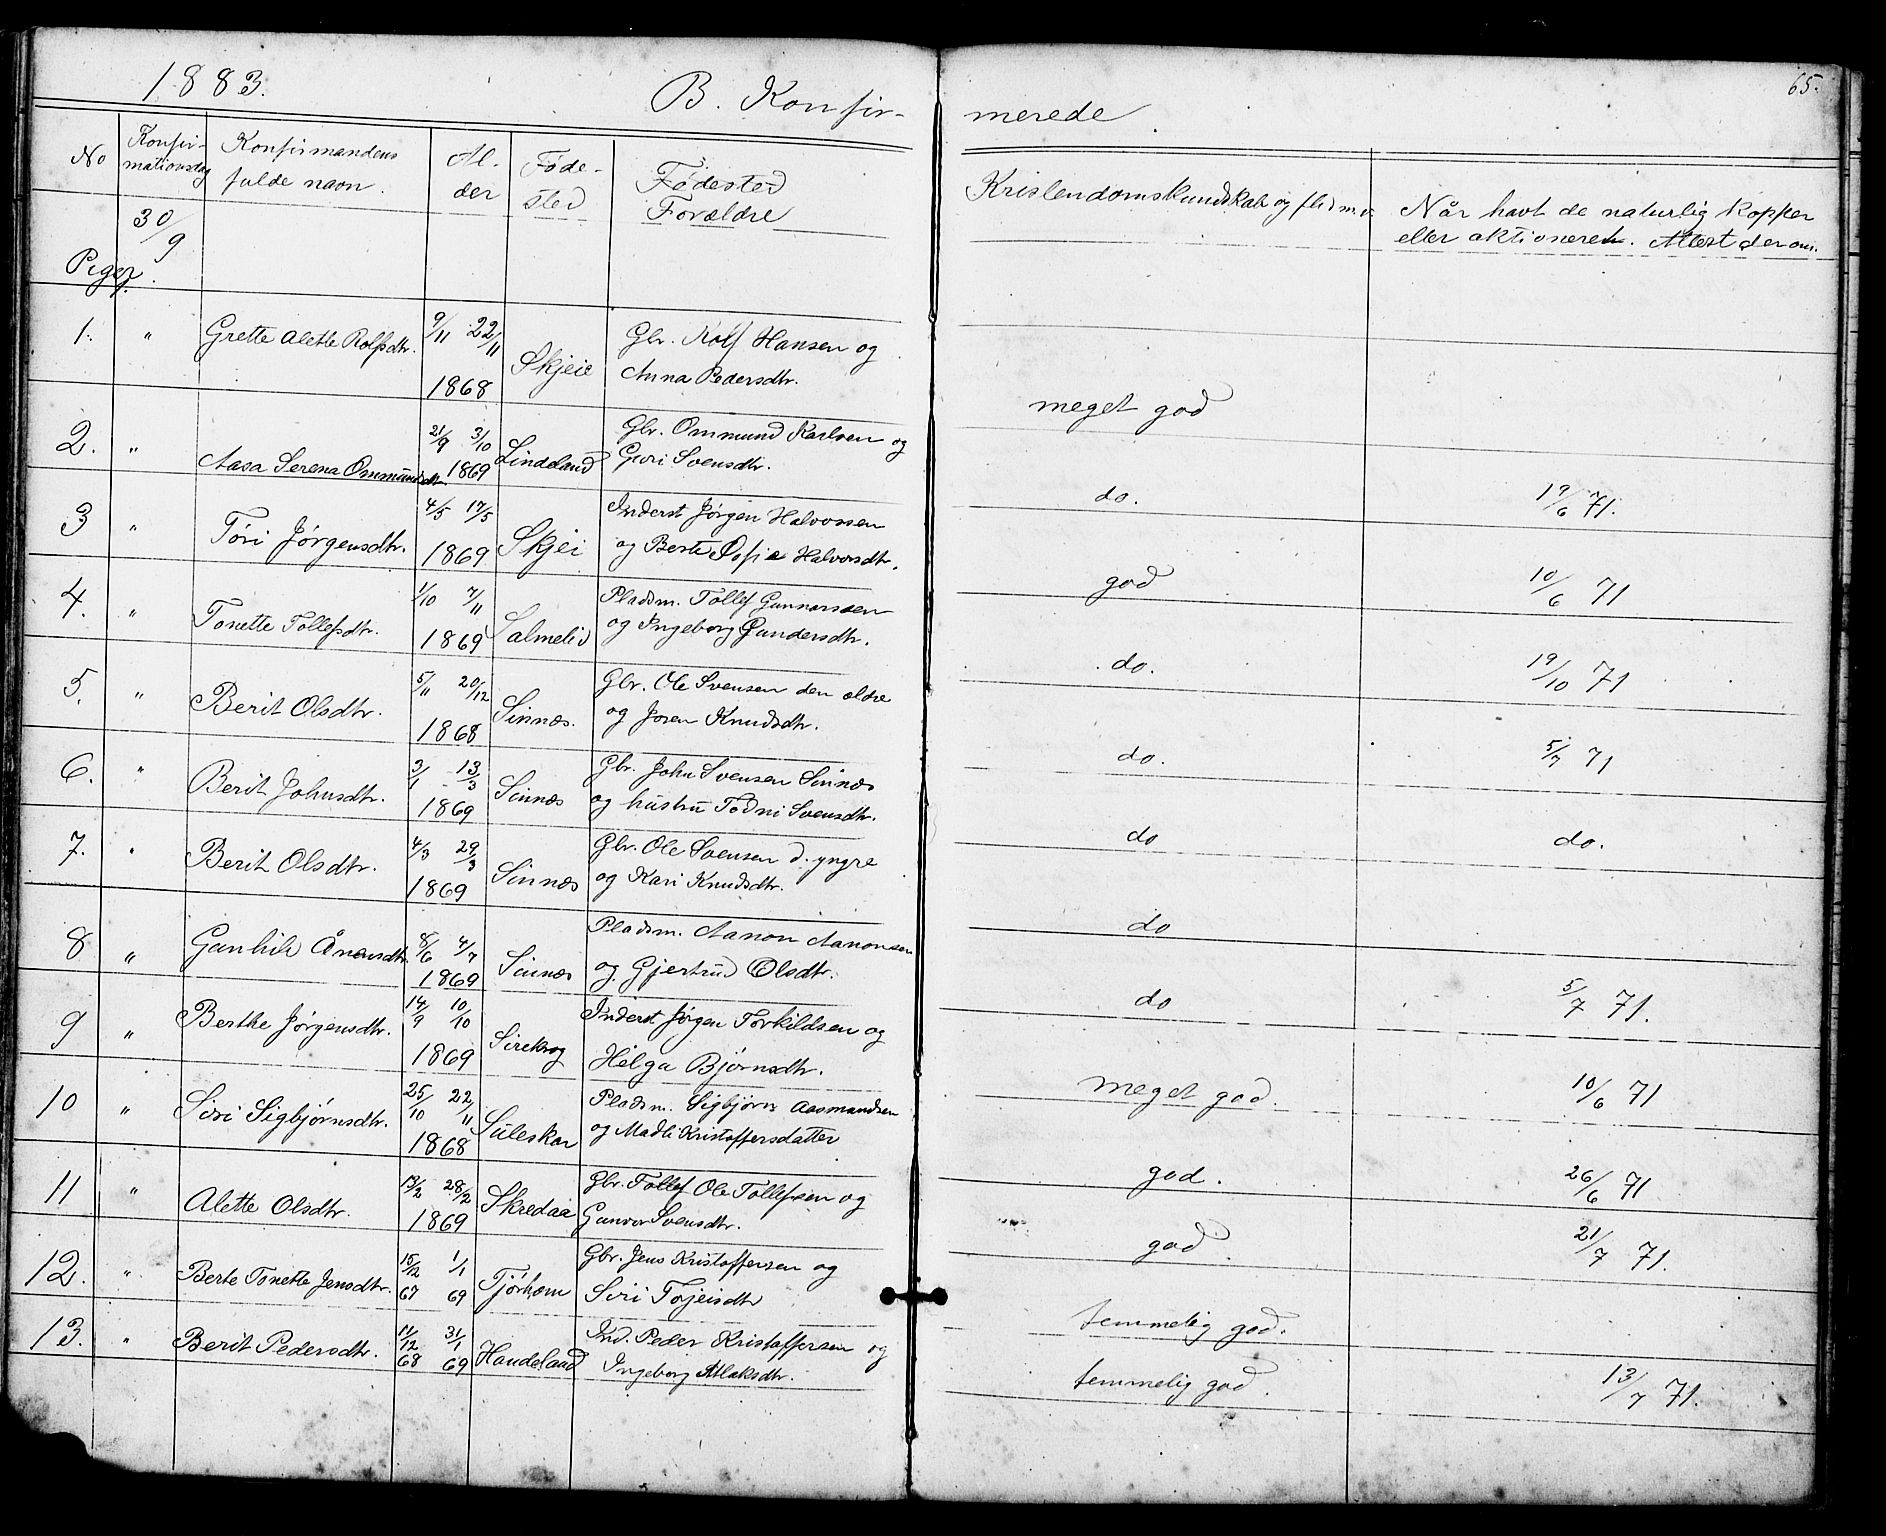 1883.
B. Konfir-
merede.
65.
No
Konfir-
mationsdag
Konfirmandens
fulde navn.
Al-
der
Føde-
sted
Fødested
Forældre
Kristendomskundskab og flid m.v.
Når havt de naturlig kopper
eller aktioneret. Attest derom.
30/9
Piger.
1. " Grette Alette Rolfsdtr. 9/11 22/11 1868 Skjeie Gbr. Rolf Hansen og
Anna Pedersdtr. meget god
2. " Aasa Serena Ommundsdtr. 21/9 3/10 1869 Lindeland Gbr. Ommund Karlsen og
Guri Svensdtr. do. 19/6 71.
3 " Tóri Jørgensdtr. 4/5 17/5 1869 Skjei Inderst Jørgen Halvorsen
og Berte Sofie Halvorsdtr. god 10/6 71
4. " Tonette Tollefsdtr. 1/10 7/11 1869 Salmelid Pladsm. Tollef Gunnarssen
og Ingeborg Gundersdtr. do. 19/10 71
5. " Berit Olsdtr. 5/11 20/12 1868 Sinnæs. Gbr. Ole Svensen den ældre
og Joren Knudsdtr. do. 5/7 71
6. " Berit Johnsdtr. 3/1 13/3 1869 Sinnæs Gbr. John Svensen Sinnæs
og hustru Todni Svensdtr. do do.
7. " Berit Olsdtr. 4/3 29/3 1869 Sinnæs Gbr. Ole Svensen d. yngre
og Kari Knudsdtr. do
8 " Gunhild Ånensdtr. 8/6 4/7 1869 Sinnæs Pladsm. Aanon Aanonsen
og Gjertrud Olsdtr. do 5/7 71.
9 " Berthe Jørgensdtr. 14/9 10/10 1869 Sirekrog Inderst Jørgen Torkildsen og
Helga Bjørnsdtr. meget god. 10/6 71
10 " Siri Sigbjørnsdtr. 25/10 22/11 1868 Suleskar Pladsm. Sigbjørn Aasmundsen
og Madli Kristoffersdatter god. 26/6 71
11 " Alette Olsdtr. 13/2 28/2 1869 Skredaa Gbr. Tollef Ole Tollefsen og
Gunvor Svensdtr. god. 21/7 71.
12. " Berte Tonette Jensdtr. 15/12 67 1/1 69 Tjørhom Gbr. Jens Kristoffersen og
Siri Torjeisdtr temmelig god.
13. " Berit Pedersdtr. 11/12 68 31/1 69 Haudeland Ind. Peder Kristoffersen og
Ingeborg Atlaksdtr. temmelig god. 13/7 71.